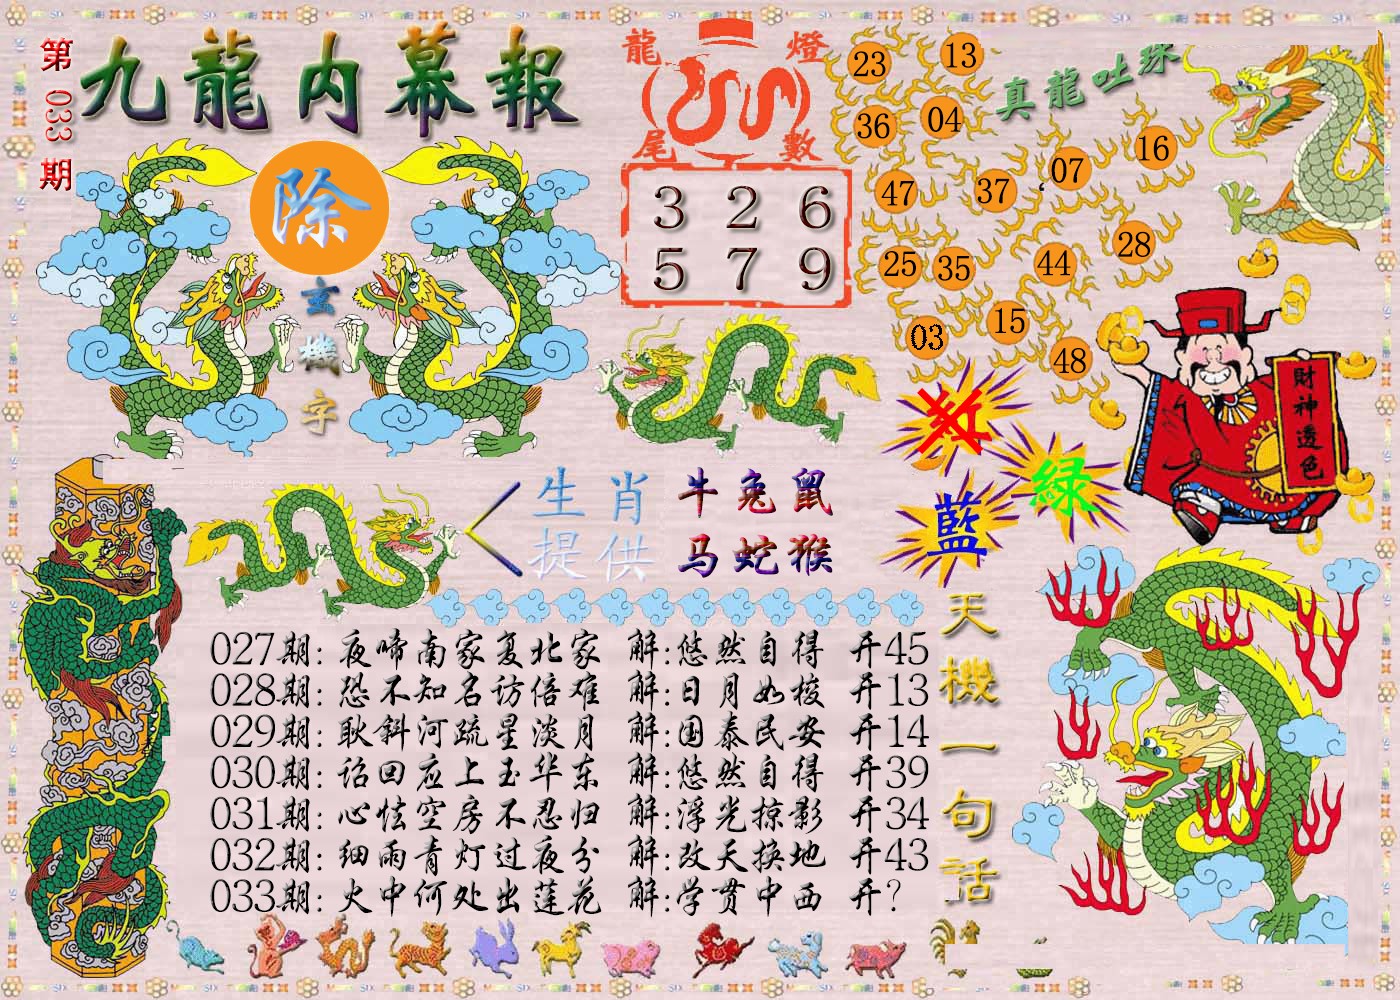 第033期
九龍内幕報
除
玄機字
龍燈
尾數
3 2 6
5 7 9
真龍吐珠
23 13
36 04
47 37 07 16
25 35 44 28
03 15 48
財神透色
紅
綠
藍
生肖 牛兔鼠
提供 马蛇猴
天機一句話
027期: 夜啼南家复北家 解:悠然自得 开45
028期: 恐不知名访倍难 解:日月如梭 开13
029期: 耿斜河疏星淡月 解:国泰民安 开14
030期: 诏回应上玉华东 解:悠然自得 开39
031期: 心怯空房不忍归 解:浮光掠影 开34
032期: 细雨青灯过夜分 解:改天换地 开43
033期: 火中何处出莲花 解:学贯中西 开?